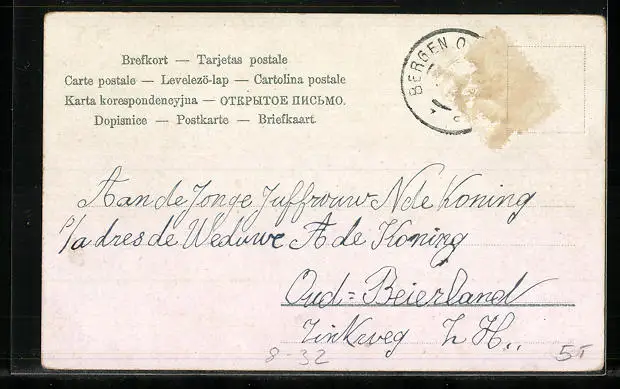 Brefkort — Tarjetas postale
Carte postale — Levelező-lap — Cartolina postale
Karta korespondencyjna — ОТКРЫТОЕ ПИСЬМО.
Dopisnice — Postkarte — Briefkaart.
BERGEN O
Aan de Jonge Juffrouw N de Koning
p/adres de Weduwe A de Koning
Oud=Beierland
Zinkweg Z H..
8-32